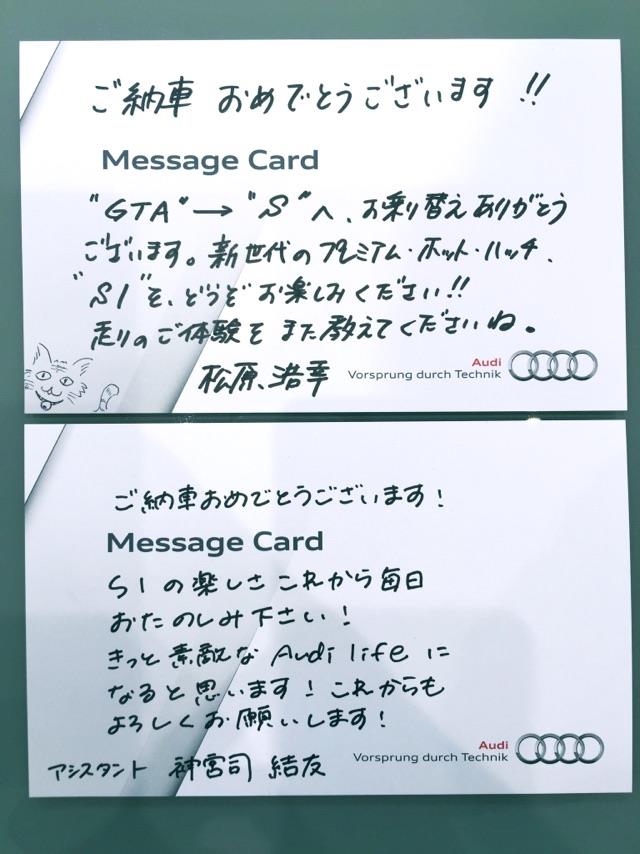 ご納車 おめでとうございます!!
Message Card
"GTA"→"S"へ、お乗り替えありがとう
ございます。新世代のプレミアム・ホット・ハッチ、
"S1"を、どうぞお楽しみください!!
走りのご体験をまた教えてくださいね。
松原、浩幸
Audi
Vorsprung durch Technik
ご納車おめでとうございます!
Message Card
S1の楽しさこれから毎日
おたのしみ下さい!
きっと素敵なAudi lifeに
なると思います!これからも
よろしくお願いします!
アシスタント 神宮司 結友
Audi
Vorsprung durch Technik